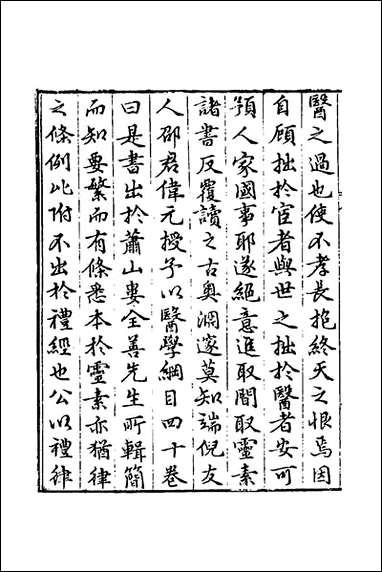 醫之過也使不孝長抱終天之恨焉因
自顧拙於宦者與世之拙於醫者安可
預人家國事耶遂絕意進取閒取靈素
諸書反覆讀之古奧淵邃莫知端倪友
人邵君偉元授予以醫學綱目四十卷
曰是書出於蕭山婁全善先生所輯簡
而知要繁而有條悉本於靈素亦猶律
之條例比附不出於禮經也公以禮律